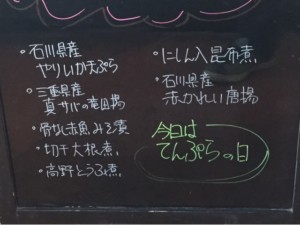 ・石川県産
やりいか天ぷら
・三重県産
真サバの竜田揚
・骨なし赤魚みそ漬
・切干大根煮
・高野とうふ煮
・にしん入昆布煮
・石川県産
赤かれい唐揚
今日は
てんぷらの日